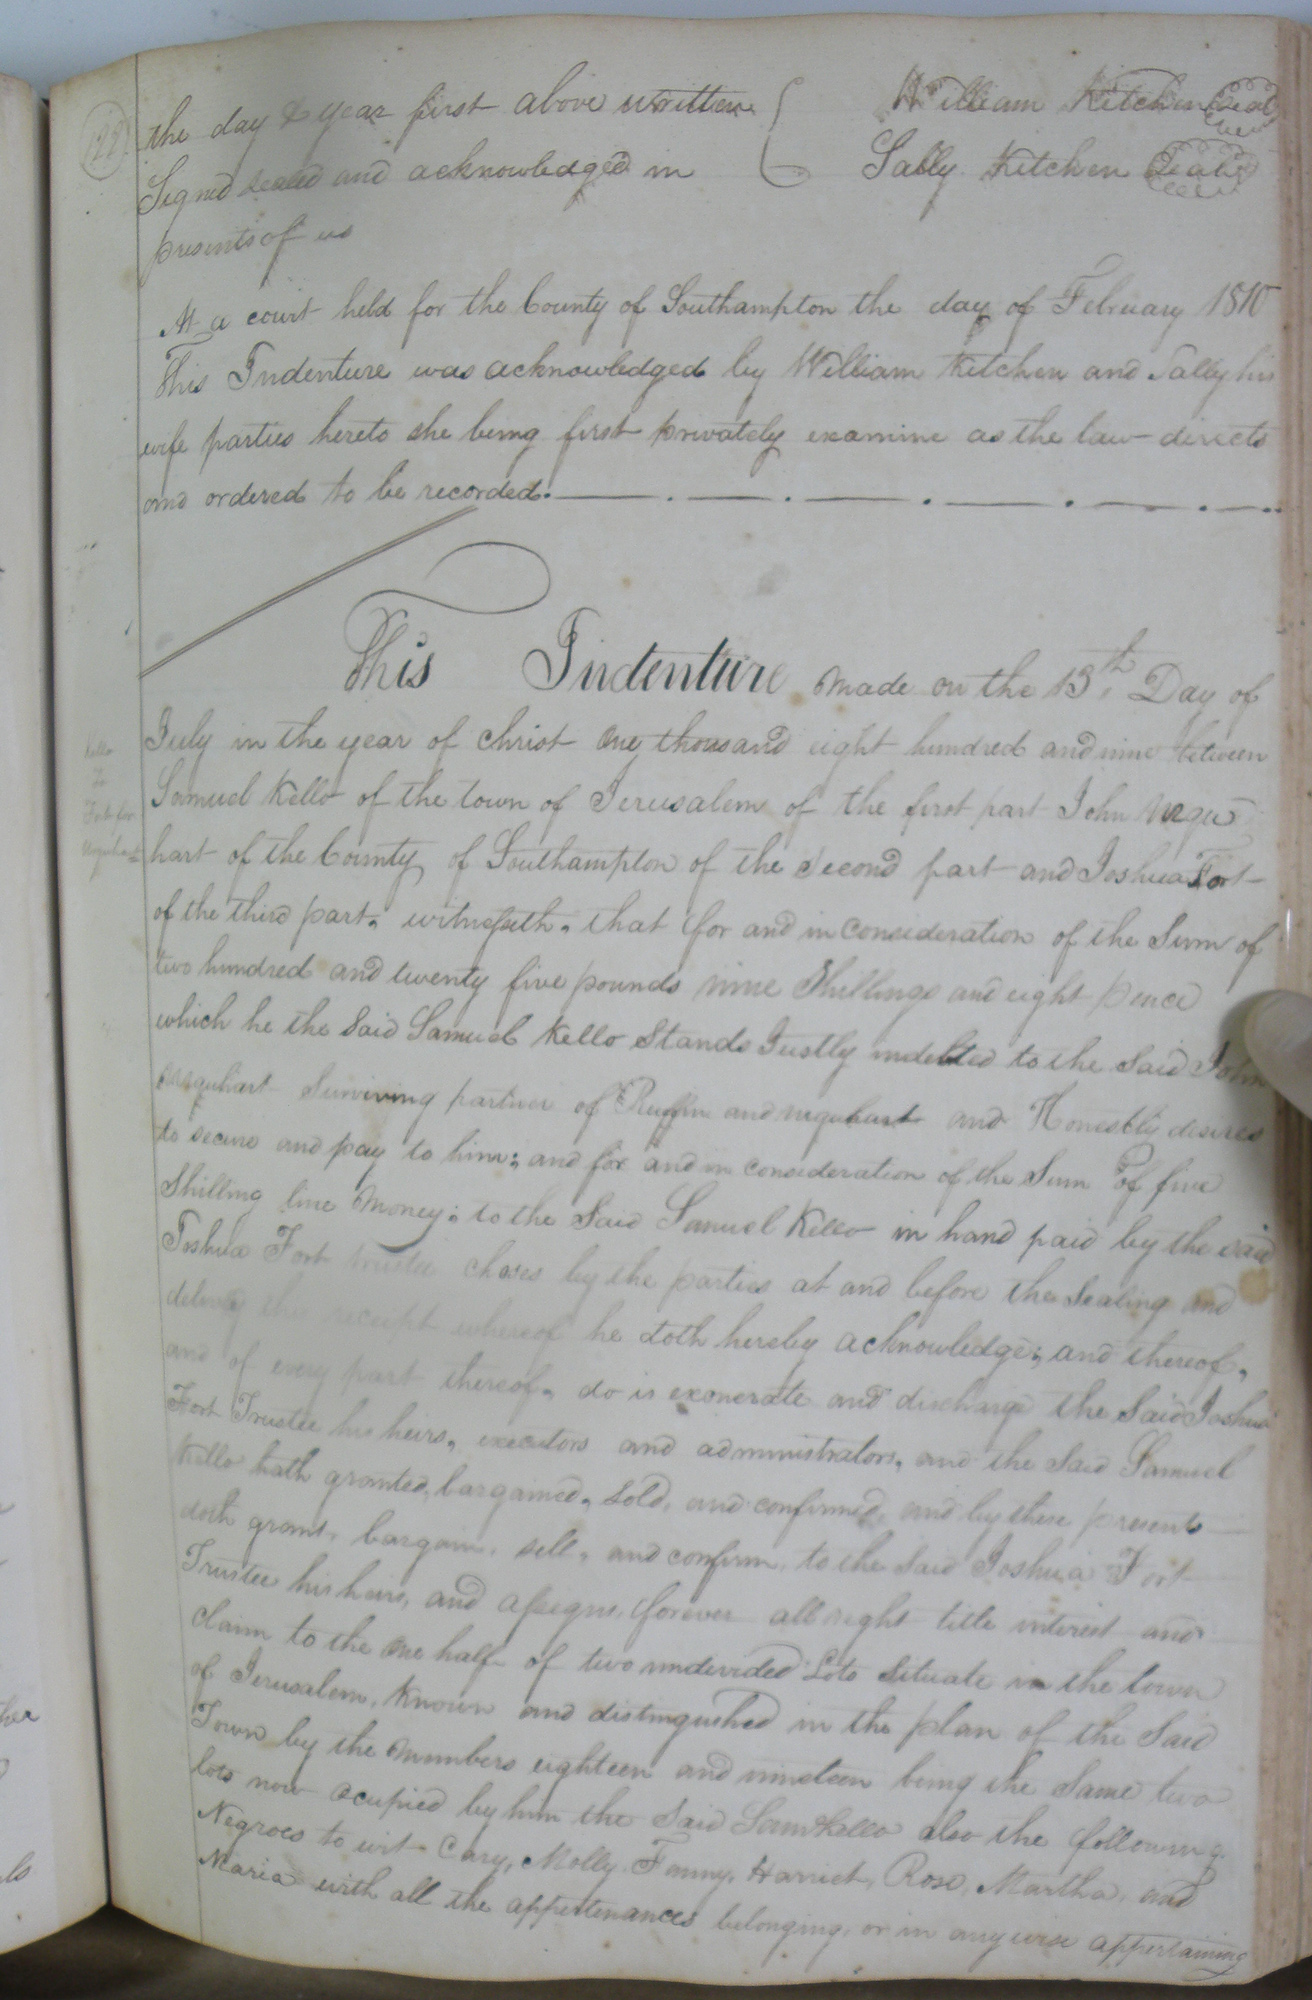 122
the day & year first above written William Kitchen Seal
Signed sealed and acknowledged in Sally Kitchen Seal
presents of us
At a court held for the County of Southampton the day of February 1810
This Indenture was acknowledged by William Kitchen and Sally his
wife parties hereto she being first privately examine as the law directs
and ordered to be recorded.
This Indenture made on the 13th Day of
July in the year of Christ One thousand eight hundred and nine between
Kello
To
Fort for
Urquhart
Samuel Kello of the town of Jerusalem of the first part John Urqu
hart of the County of Southampton of the Second part and Joshua Fort
of the third part, witnesseth, that for and in consideration of the Sum of
two hundred and twenty five pounds nine Shillings and eight pence
which he the Said Samuel Kello Stands Justly indebted to the Said John
Urquhart Surviving partner of Ruffin and urquhart and Honestly desires
to secure and pay to him; and for and in consideration of the Sum of five
Shilling line Money; to the Said Samuel Kello in hand paid by the said
Joshua Fort trustee choses by the parties at and before the Sealing and
delivery the receipt whereof he doth hereby acknowledge; and thereof,
and of every part thereof, do is exonerate and discharge the Said Joshua
Fort Trustee his heirs, executors and administrators, and the Said Samuel
Kello hath granted, bargained, Sold, and confirmed, and by these presents
doth grant, bargain, sell, and confirm, to the Said Joshua Fort
Trustee his heirs, and assigns, forever all right title interest and
claim to the one half of two undivided Lots Situate in the town
of Jerusalem, Known and distinguished in the plan of the Said
Town by the numbers eighteen and nineteen being the Same two
lots now ocupied by him the Said Saml Kello also the following
Negroes to wit Cary, Molly Fanny, Harriet, Rose, Martha, and
Maria with all the appertenances belonging, or in any wise appertaining